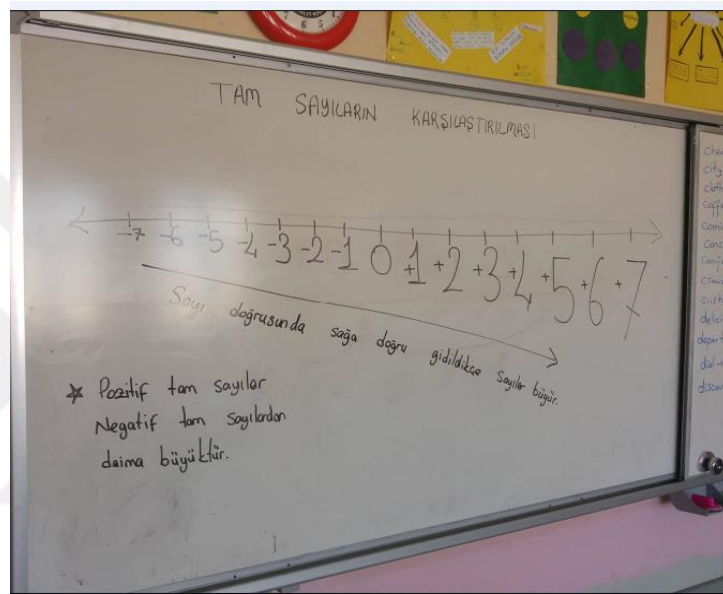 TAM SAYILARIN KARŞILAŞTIRILMASI
-7 -6 -5 -4 -3 -2 -1 0 +1 +2 +3 +4 +5 +6 +7
Sayı doğrusunda sağa doğru gidildikçe Sayılar büyür.
☆ Pozitif tam sayılar
Negatif tam sayılardan
daima büyüktür.
city